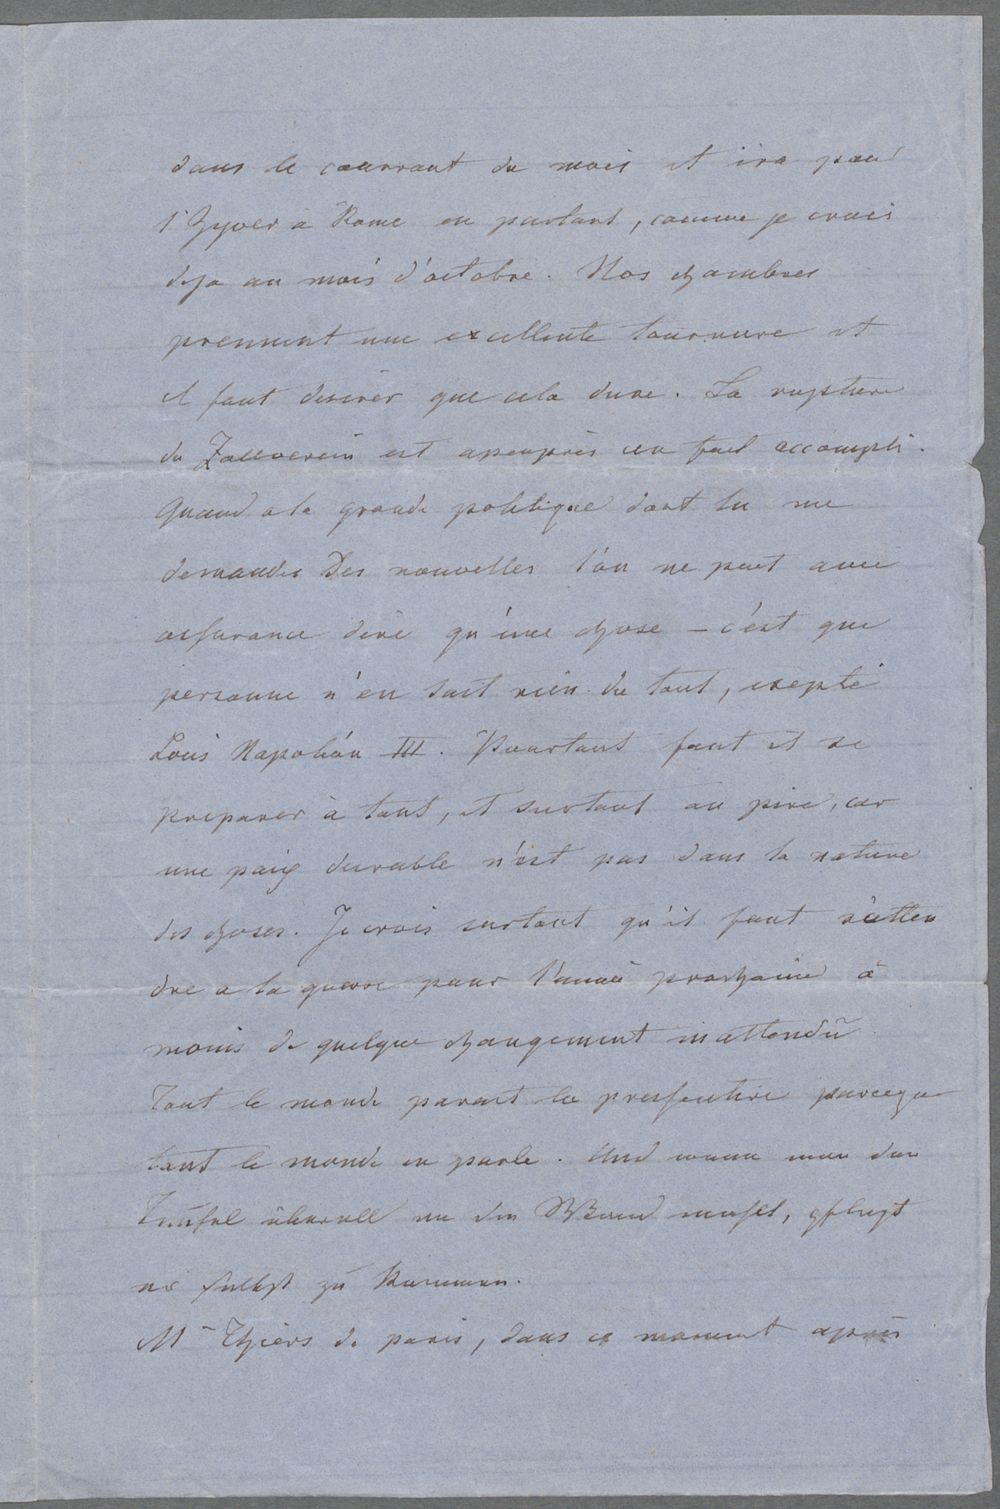 dans le courrant du mois et ira pour
l'hyver à Rome en partant, comme je crois
deja au mois d'octobre. Nos chambres
prennent une excellente tournure et
il faut desirer que cela dure. La rupture
du Zollverein est apeuprès un fait accompli.
Quand a la grande politique dont tu me
demandes des nouvelles l'on ne peut avec
assurance dire qu'une chose – c'est que
personne n'en sait rien du tout, exepté
Louis Napoléon III. Pourtant faut il se
preparer à tout, et surtout au pire, car
une paix durable n'est pas dans la nature
des choses. Je crois surtout qu'il faut s'atten
dre a la guerre pour l'année prochaine à
moins de quelque changement inattendû.
Tout le monde parait la pressentire parceque
tout le monde en parle. Und wenn man den
Teufel überall an die Wand mahlt, pflegt
er selbst zu kommen.
Mr Thiers de paris, dans ce moment après